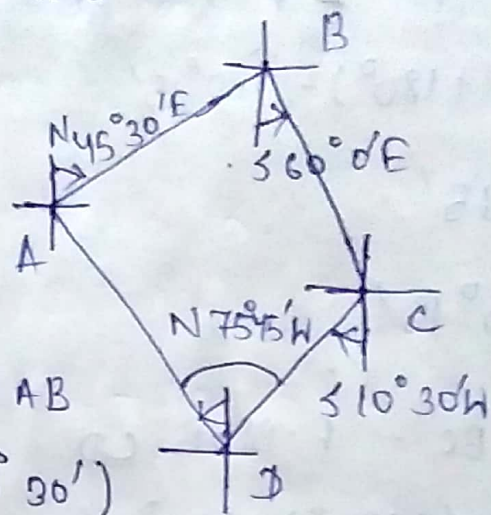 B
N45°30'E
S60°0'E
A
N75°45'W
C
AB
S10°30'W
30')
D